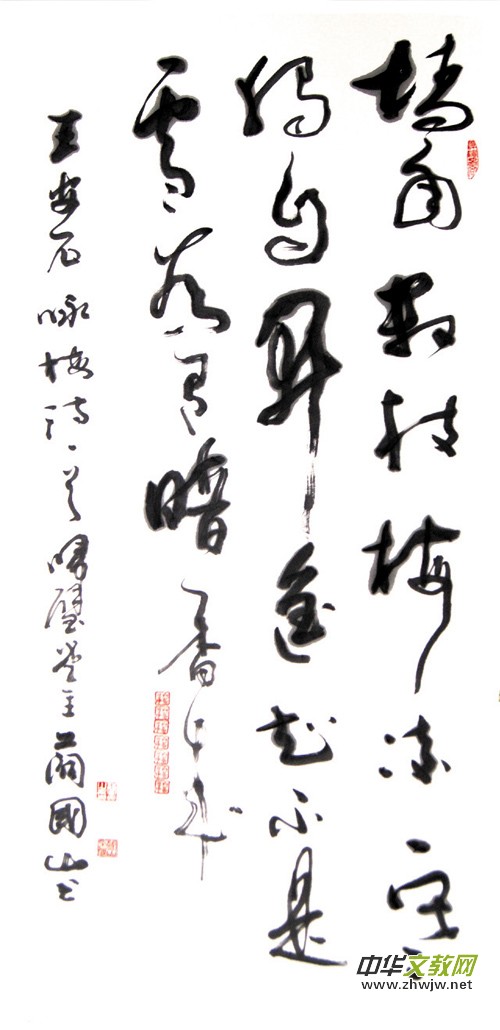 墙角數枝梅凌寒
獨自開遙知不是
雪為有暗香來
王安石咏梅诗一首 堂主 國山书
中华文教网
www.zhwjw.net